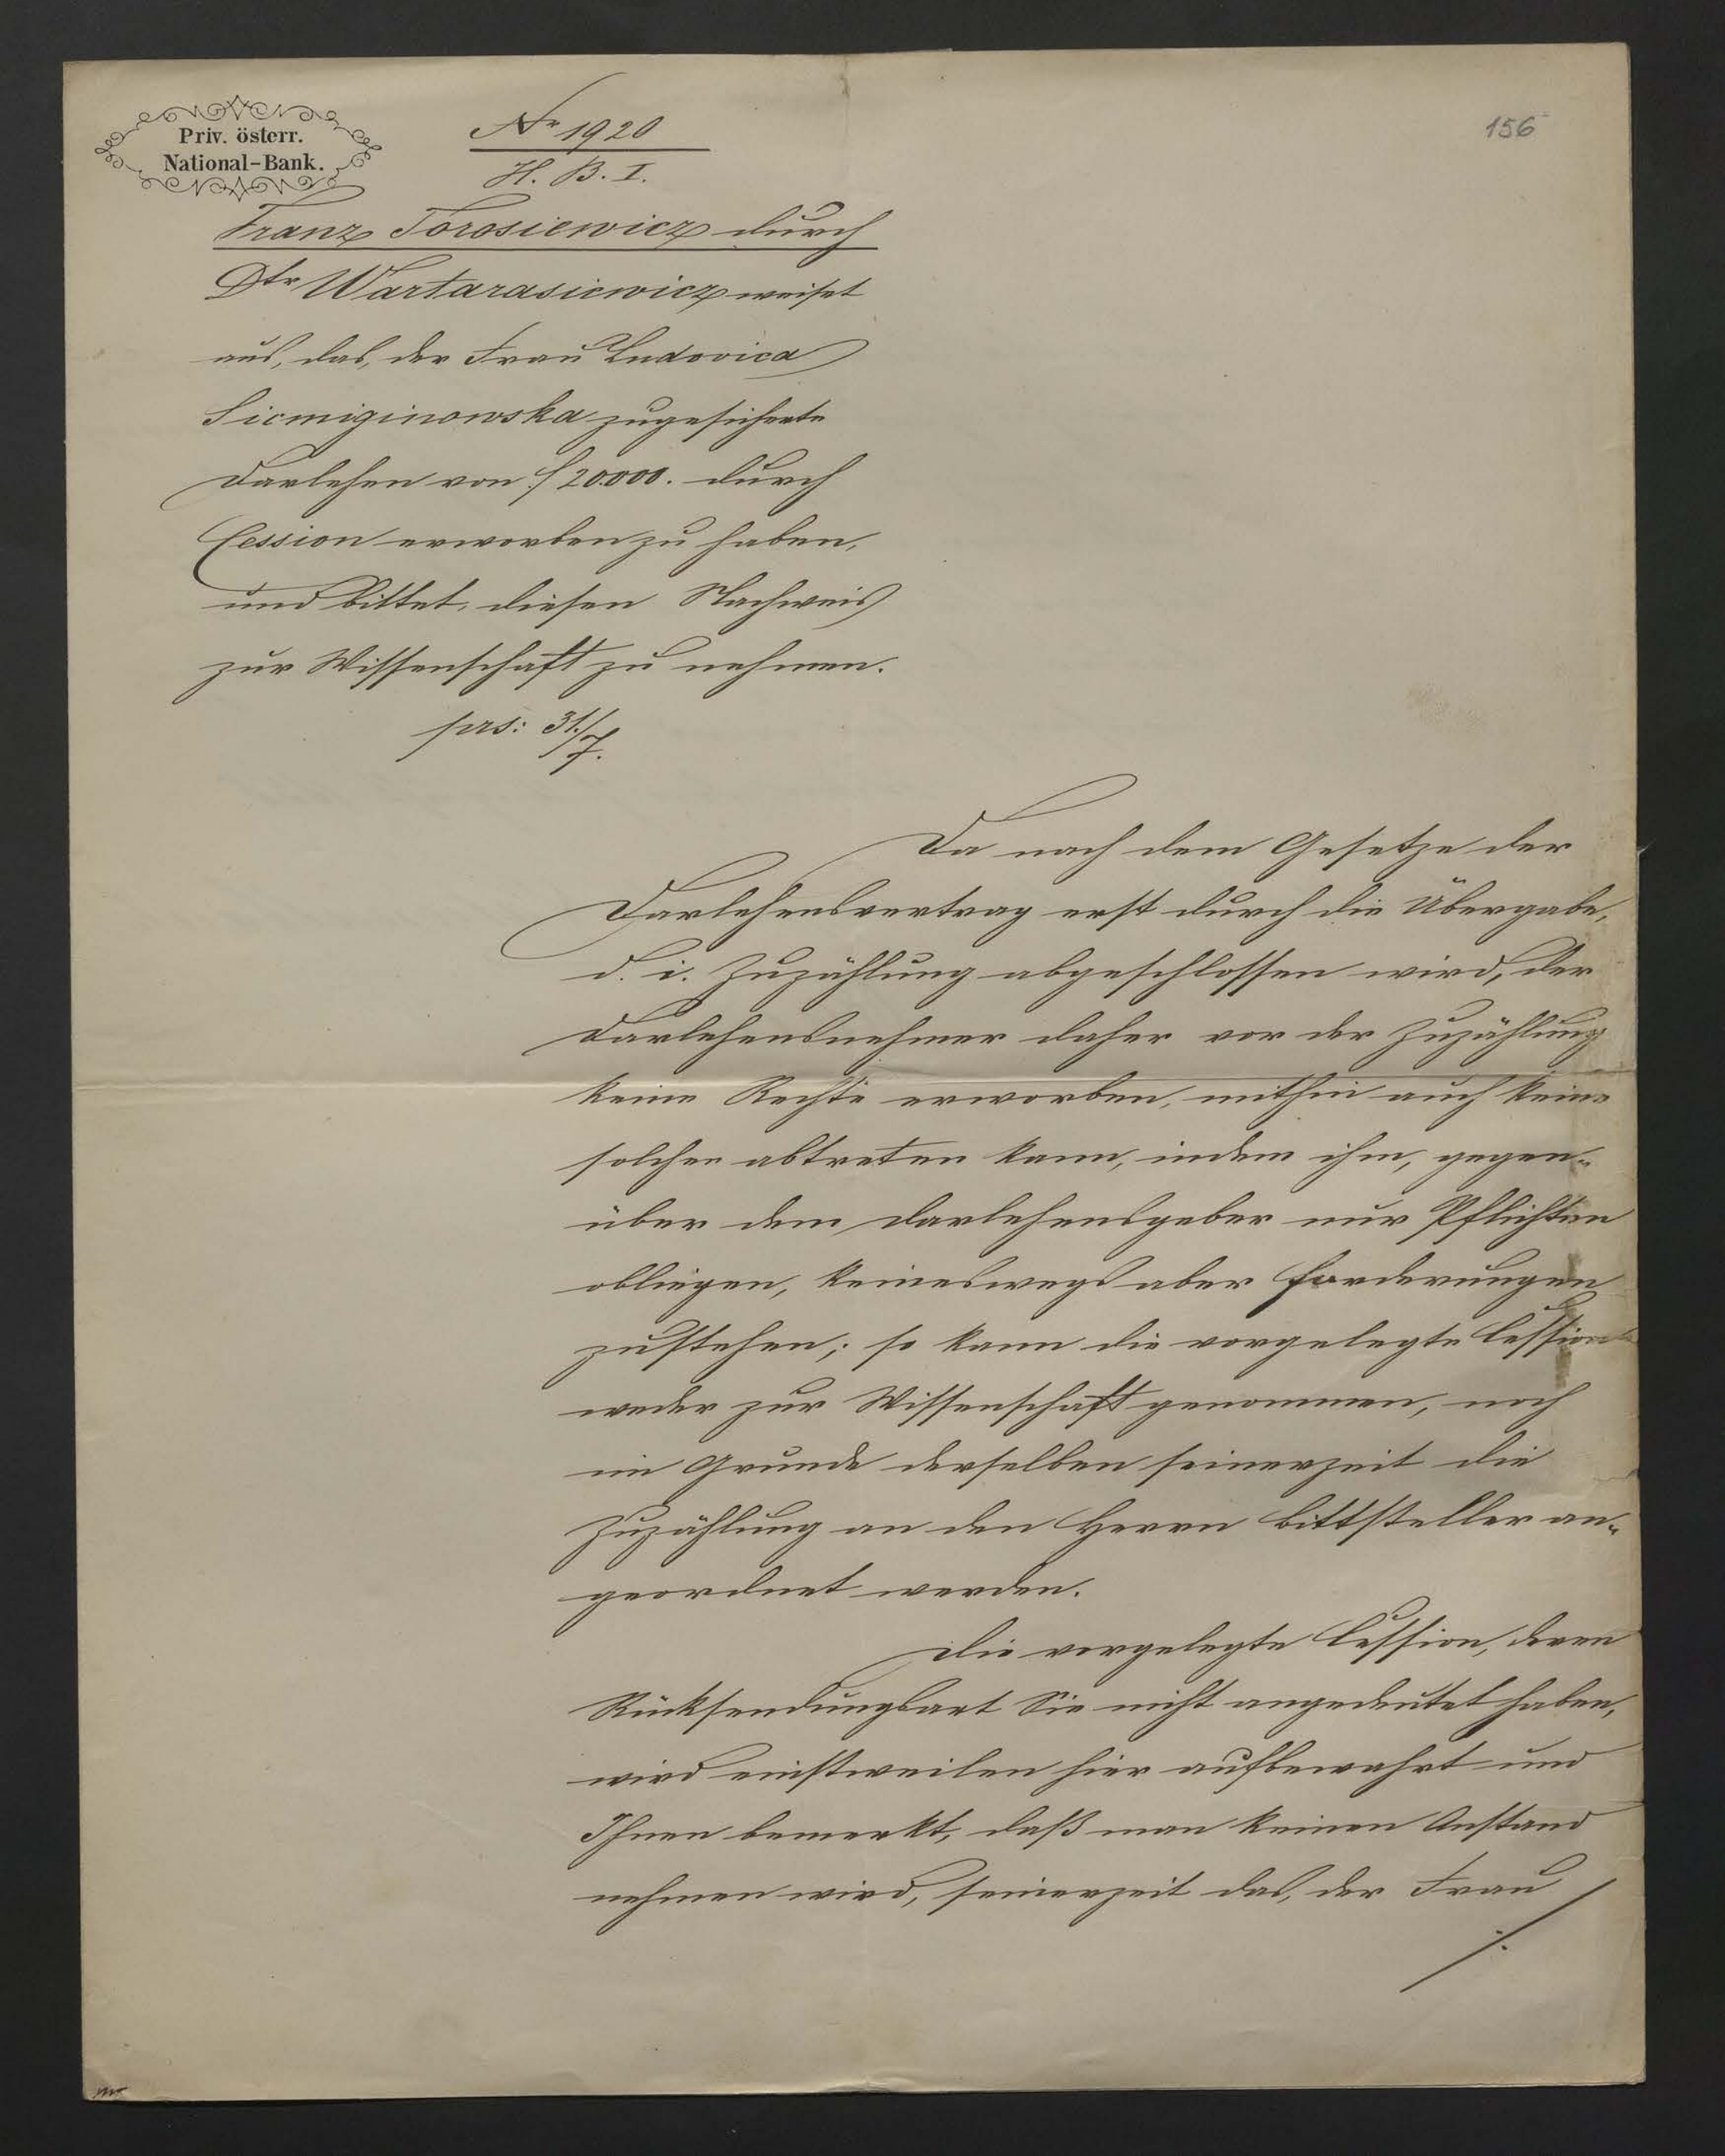 Priv. österr.
National-Bank.
Nr 1920
H. B. I.
156
Franz Torosiewicz durch
Dtr Wartarasiewicz weiset
aus, das, der Frau Ludovica
Siemiginowska zugesicherte
Darlehen von f 20.000. durch
Cession erworben zu haben,
und bittet, diesen Nachweis
zur Wissenschaft zu nehmen.
prs: 31./7.
Da nach dem Gesetze der
Darlehensvertrag erst durch die Übergabe,
d. i. Zuzählung abgeschlossen wird, der
Darlehensnehmer daher vor der Zuzählung
keine Rechte erworben, mithin auch keine
solchen abtreten kann, indem ihm, gegen-
über dem Darlehensgeber nur Pflichten
obliegen, keineswegs aber Forderungen
zustehen; so kann die vorgelegte Cession
weder zur Wissenschaft genommen, noch
im Grunde derselben seinerzeit die
Zuzählung an den Herrn Bittsteller an-
geordnet werden.
Die vorgelegte Cession, deren
Rücksendungsart Sie nicht angedeutet haben,
wird einstweilen hier aufbewahrt und
Ihnen bemerkt, daß man keinen Anstand
nehmen wird, seinerzeit das, der Frau
./.